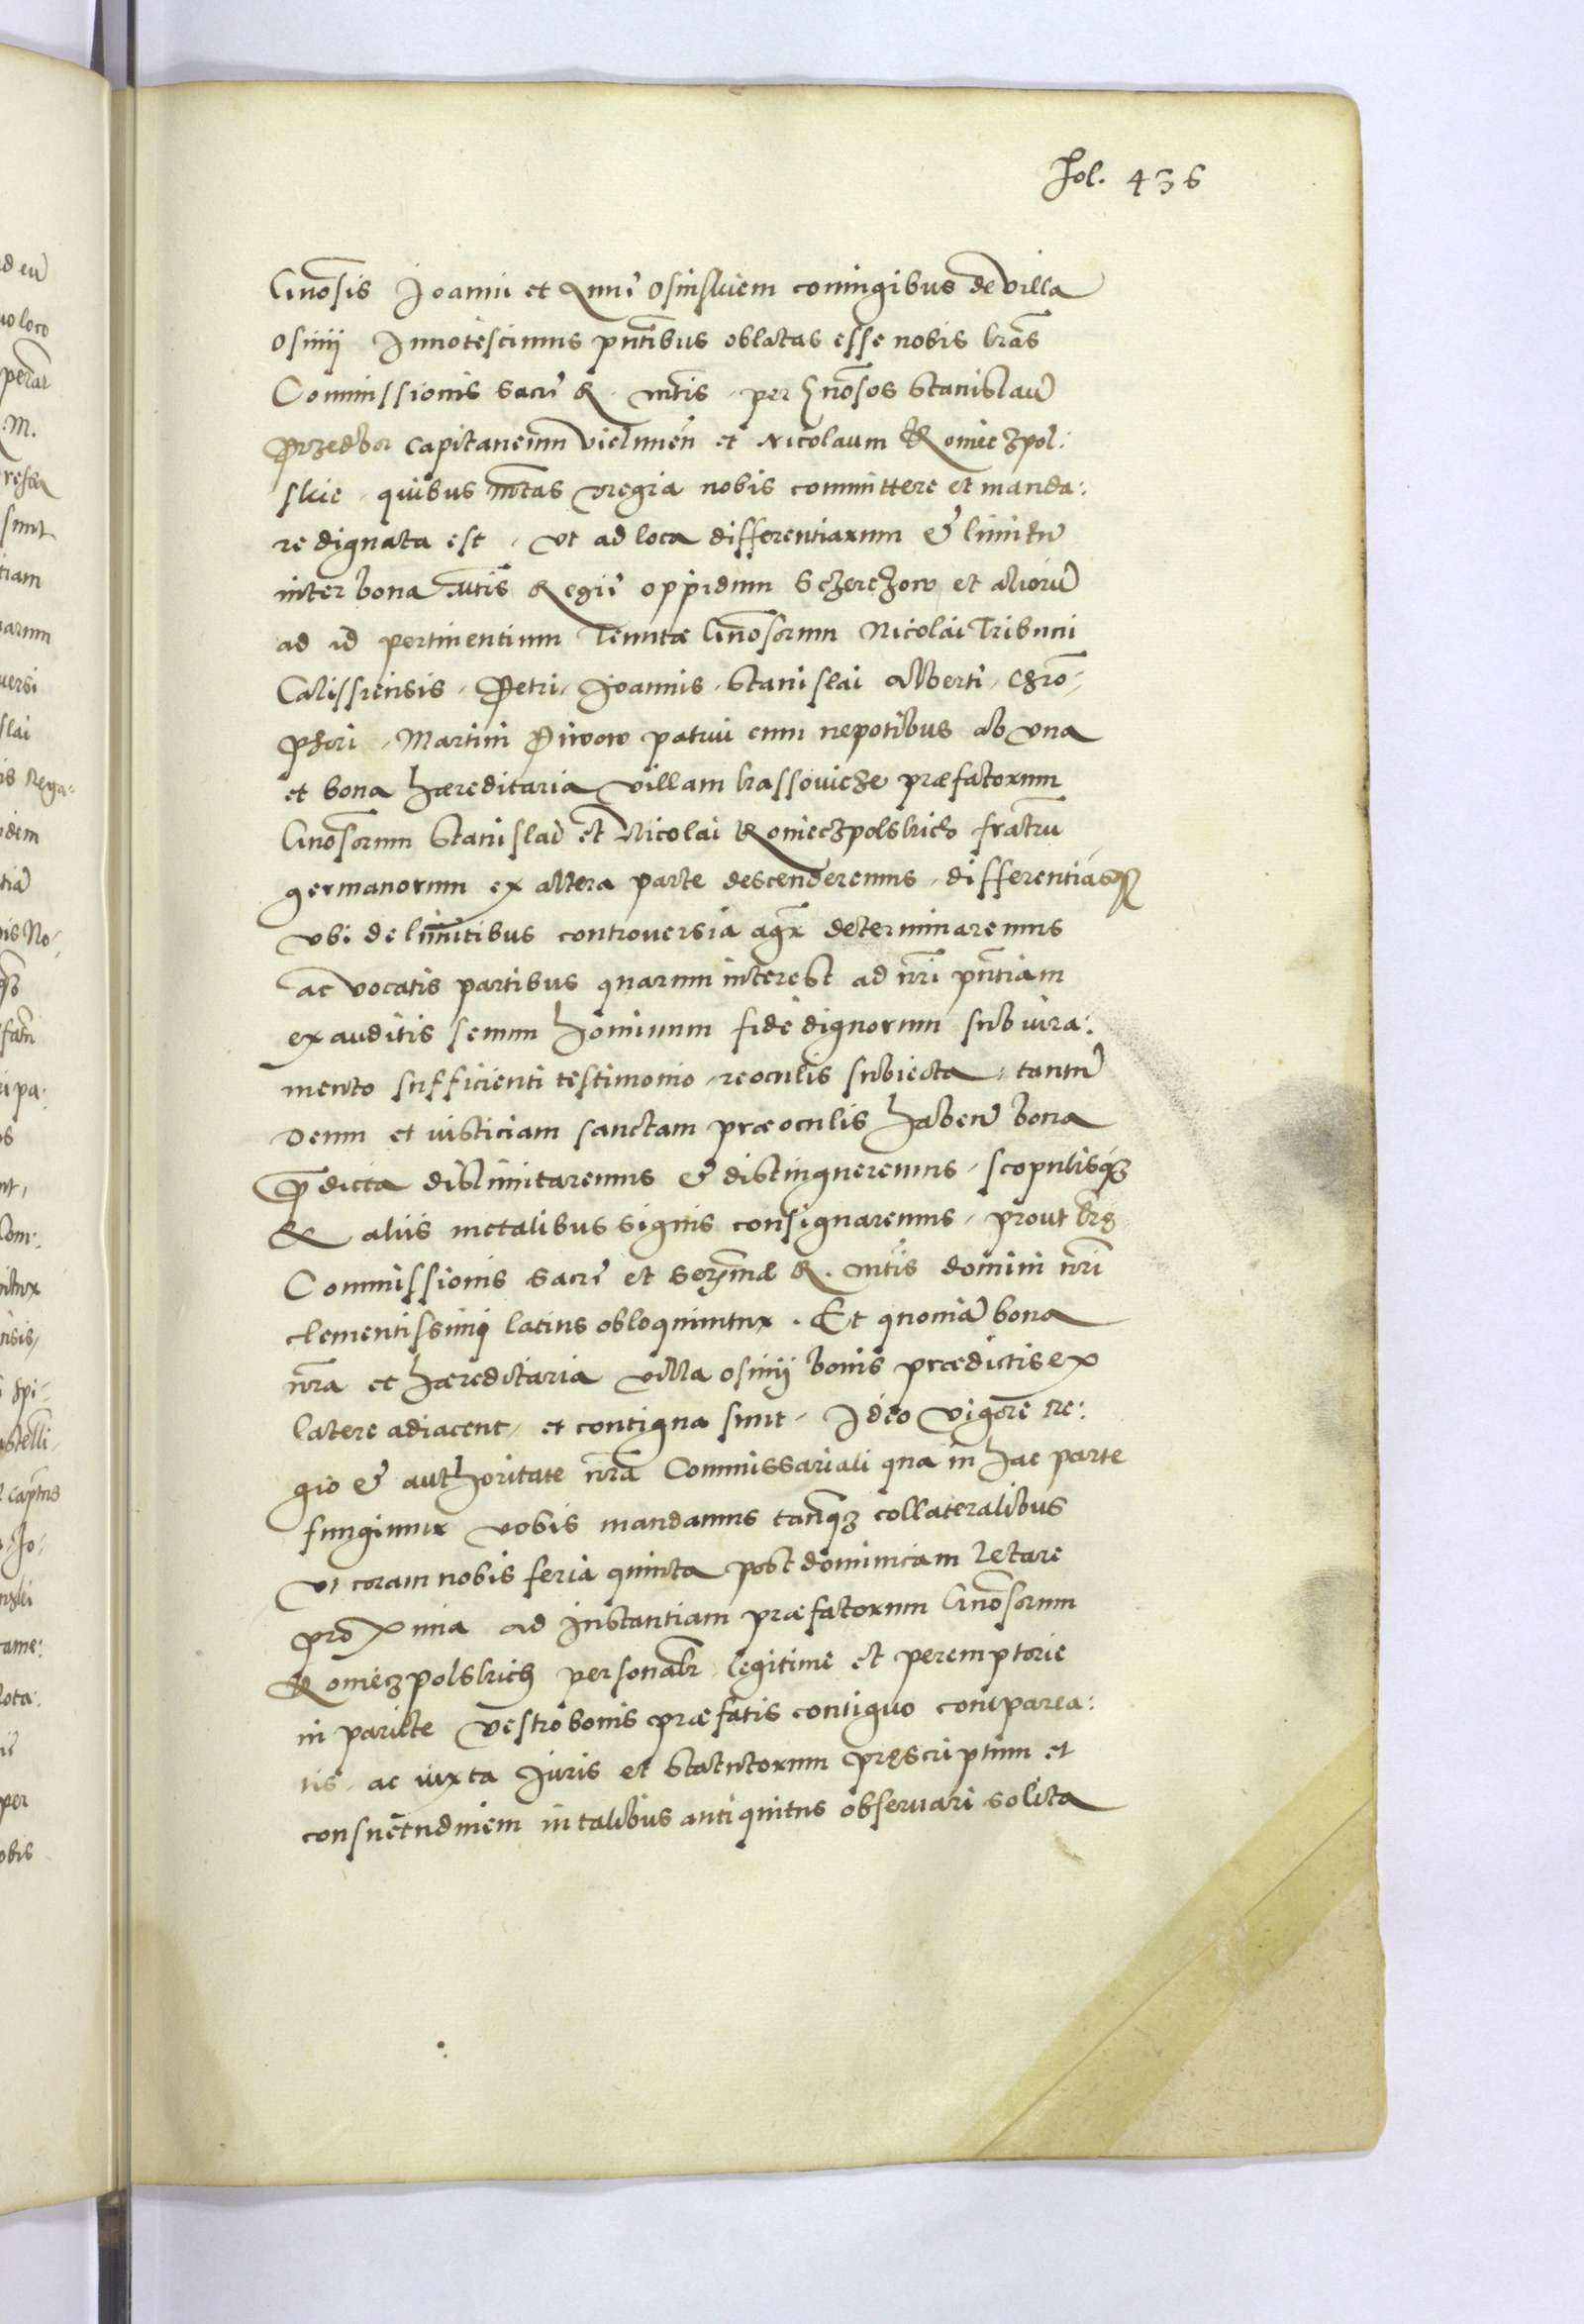 Fol. 436
Gnõsis Joanni et Anne Osinskiem coniugibus de villa
Osiny Innotescimus pn̄tibus oblatas esse nobis lr̄as
Commissionis Sacre R. mtis. per Gnōsos Stanislaū
Przedbor Capitaneum Vielunen̄ et Nicolaum Konieczpol:
skie quibus mtas regia nobis committere et manda:
re dignata est, ut ad loca differentiarum & limitū
inter bona Mtis Regie oppidum Sczerczow et aliorū
ad id pertinentium Tenutæ Gnōsorum Nicolai Tribuni
Calissiensis, Petri, Joannis, Stanislai Alberti, Chrō-
phori, Martini Piwow patrui cum nepotibus ab una
et bona hæreditaria villam krassowicze præfatorum
Gnōsorum Stanislai et Nicolai Koniecpolskich fratrū
germanorum ex altera parte descenderemus, differentiasq
ubi de limitibus controversia agr̄ determinaremus
ac vocatis partibus quarum interest ad nr̄i pn̄tiam
exauditis senum hominum fide dignorum sub iura:
mento sufficienti testimonio, re oculis subiecta, tantū
Deum et iusticiam sanctam præ oculis haben̄ bona
p̄dicta dislimitaremus & distingueremus, scopulisq́
& aliis metalibus signis consignaremus, prout lr̄æ
Commissionis Sacre et Serm̄æ R. mtis domini nr̄i
clementissimi latius obloquuntur. Et quoniā bona
nr̄a et hæreditaria villa osiny bonis prædictis ex
latere adiacent, et contigua sunt, Ideo vigore re:
gio & authoritate nr̄a Commissariali qua in hac parte
fungimur vobis mandamus tanq̄ collateralibus
ut coram nobis feria quinta post dominicam Letare
proxima ad instantiam præfatorum Gnōsorum
Koniéczpolskich personalr̄ legitime et peremptorie
in pariete vestro bonis præfatis contiguo comparea:
tis, ac iuxta Juris et Statutorum præscriptum et
consuetudinem in talibus antiquitus observari solita